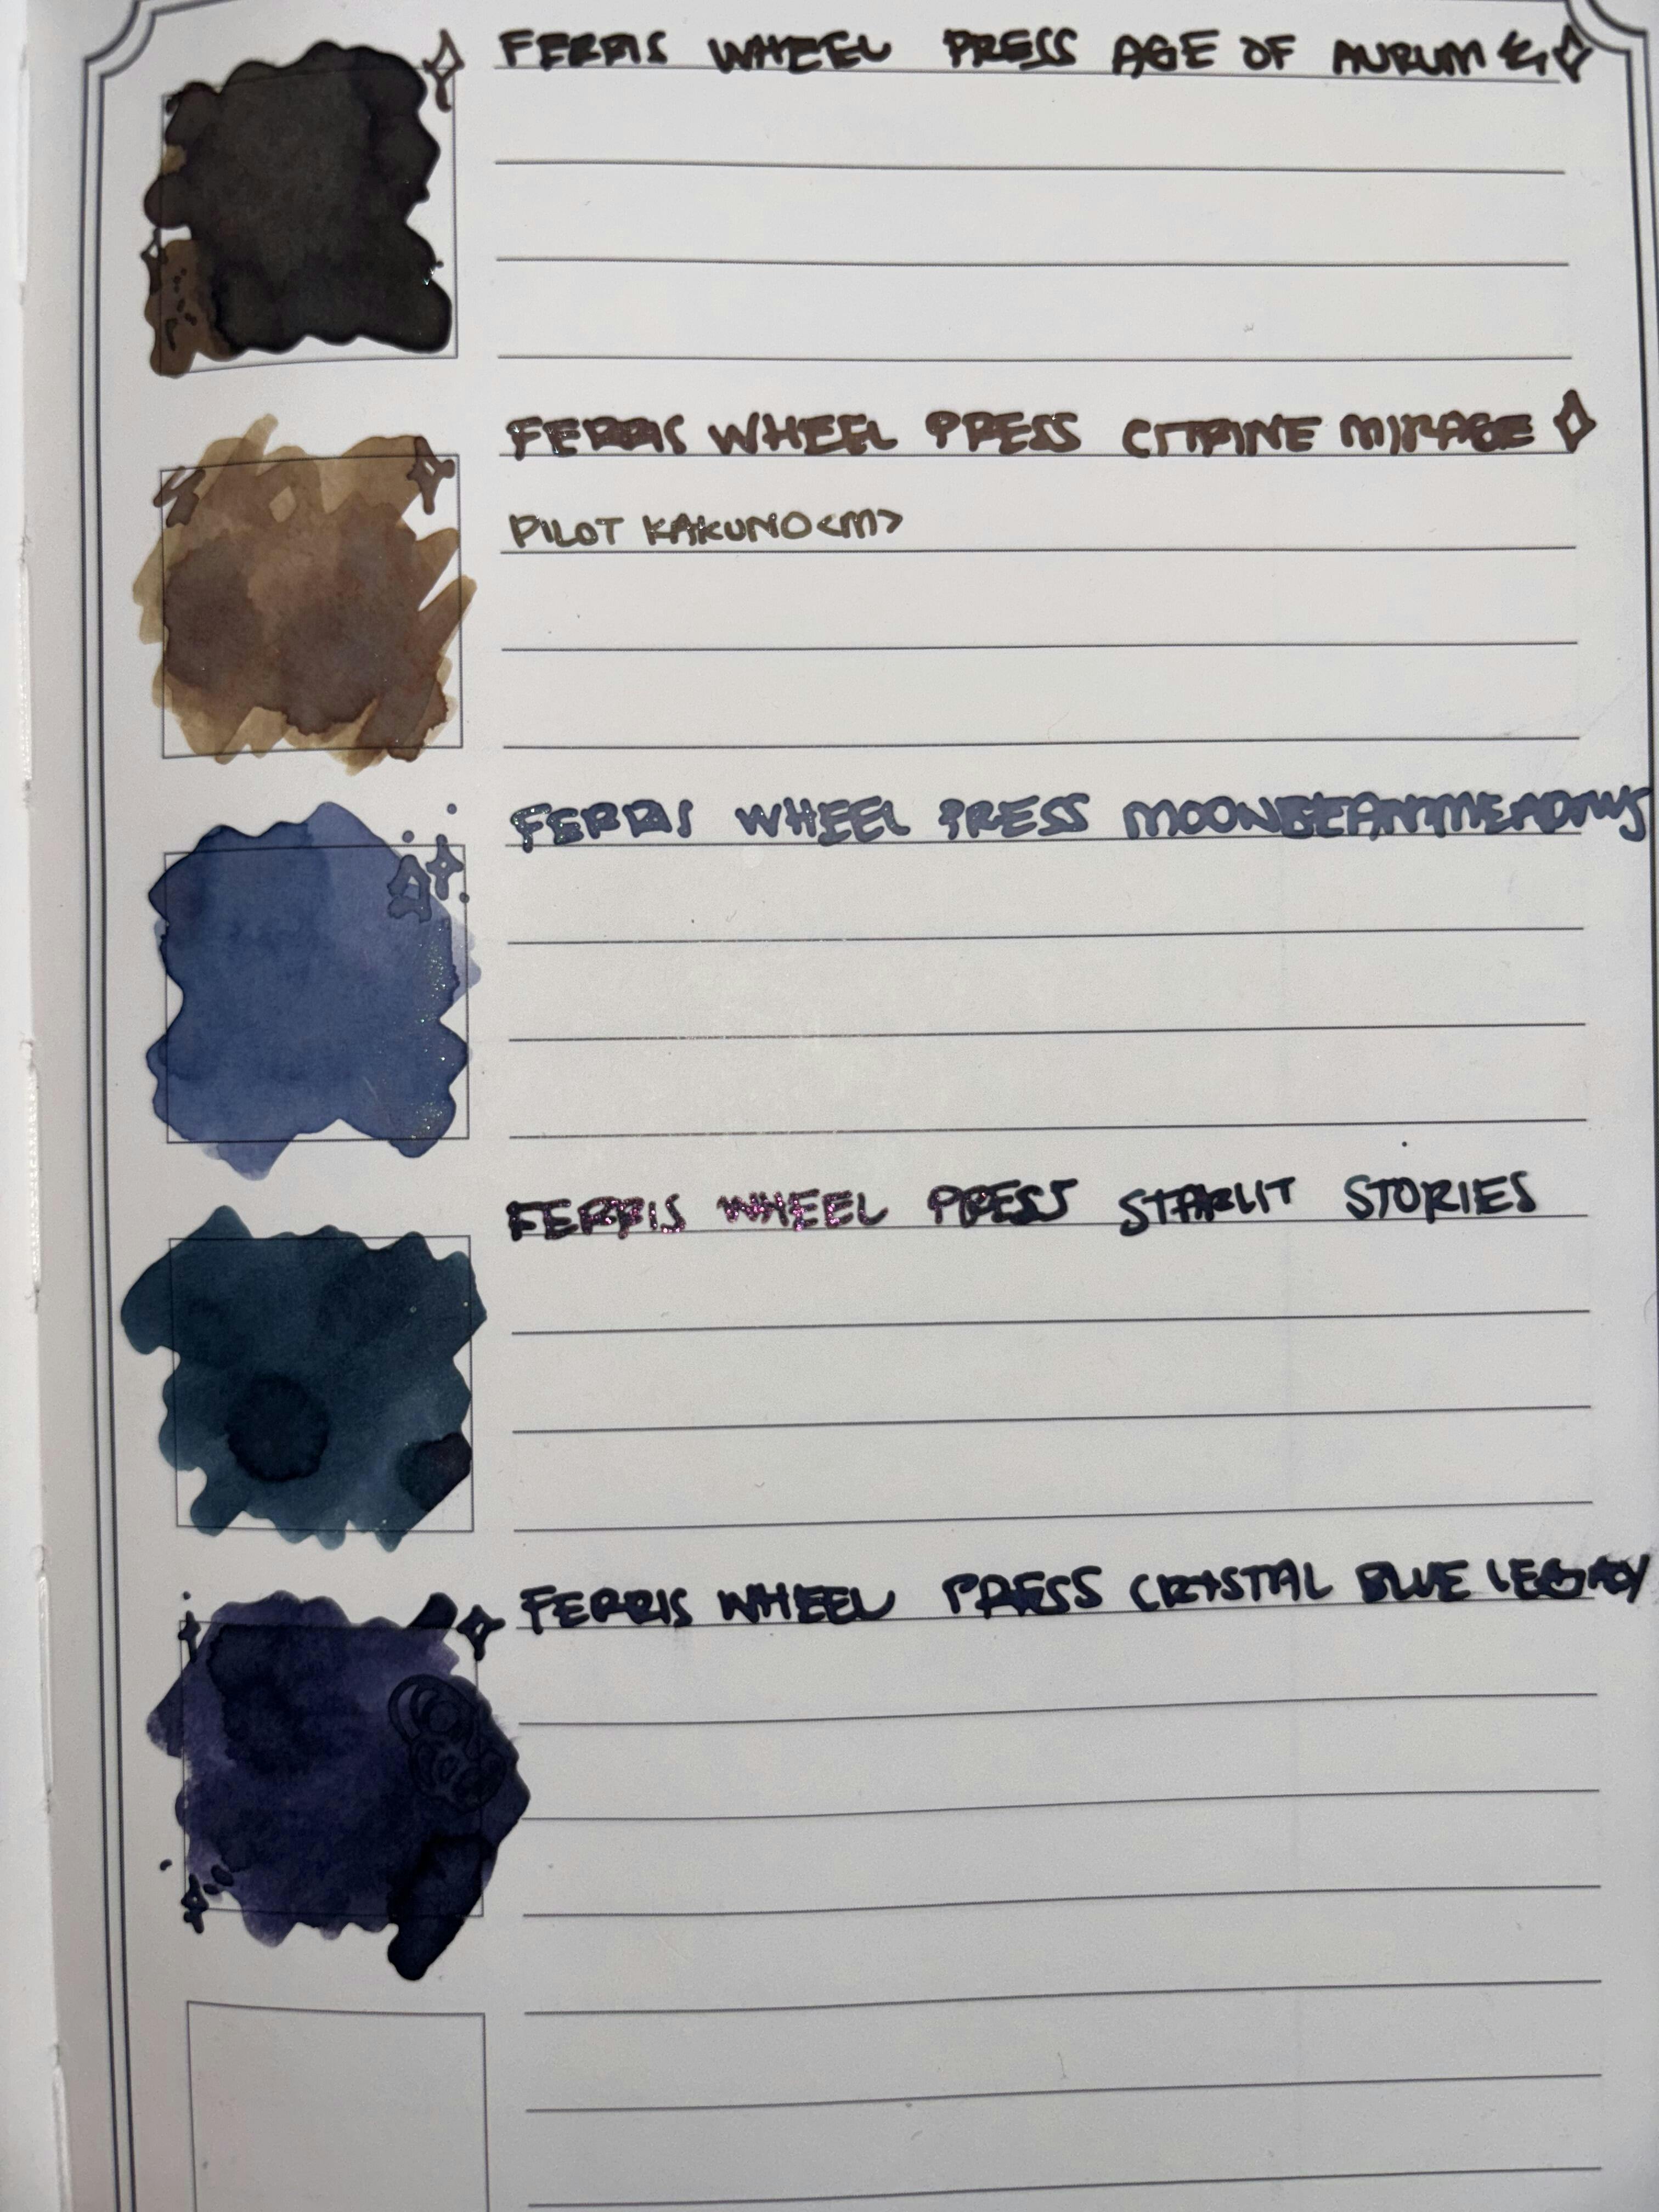 FERRIS WHEEL PRESS AGE OF AURUM
FERRIS WHEEL PRESS CITRINE MIRAGE
PILOT KAKUNO <M>
FERRIS WHEEL PRESS MOONBEAM MEADOWS
FERRIS WHEEL PRESS STARLIT STORIES
FERRIS WHEEL PRESS CRYSTAL BLUE LEGACY